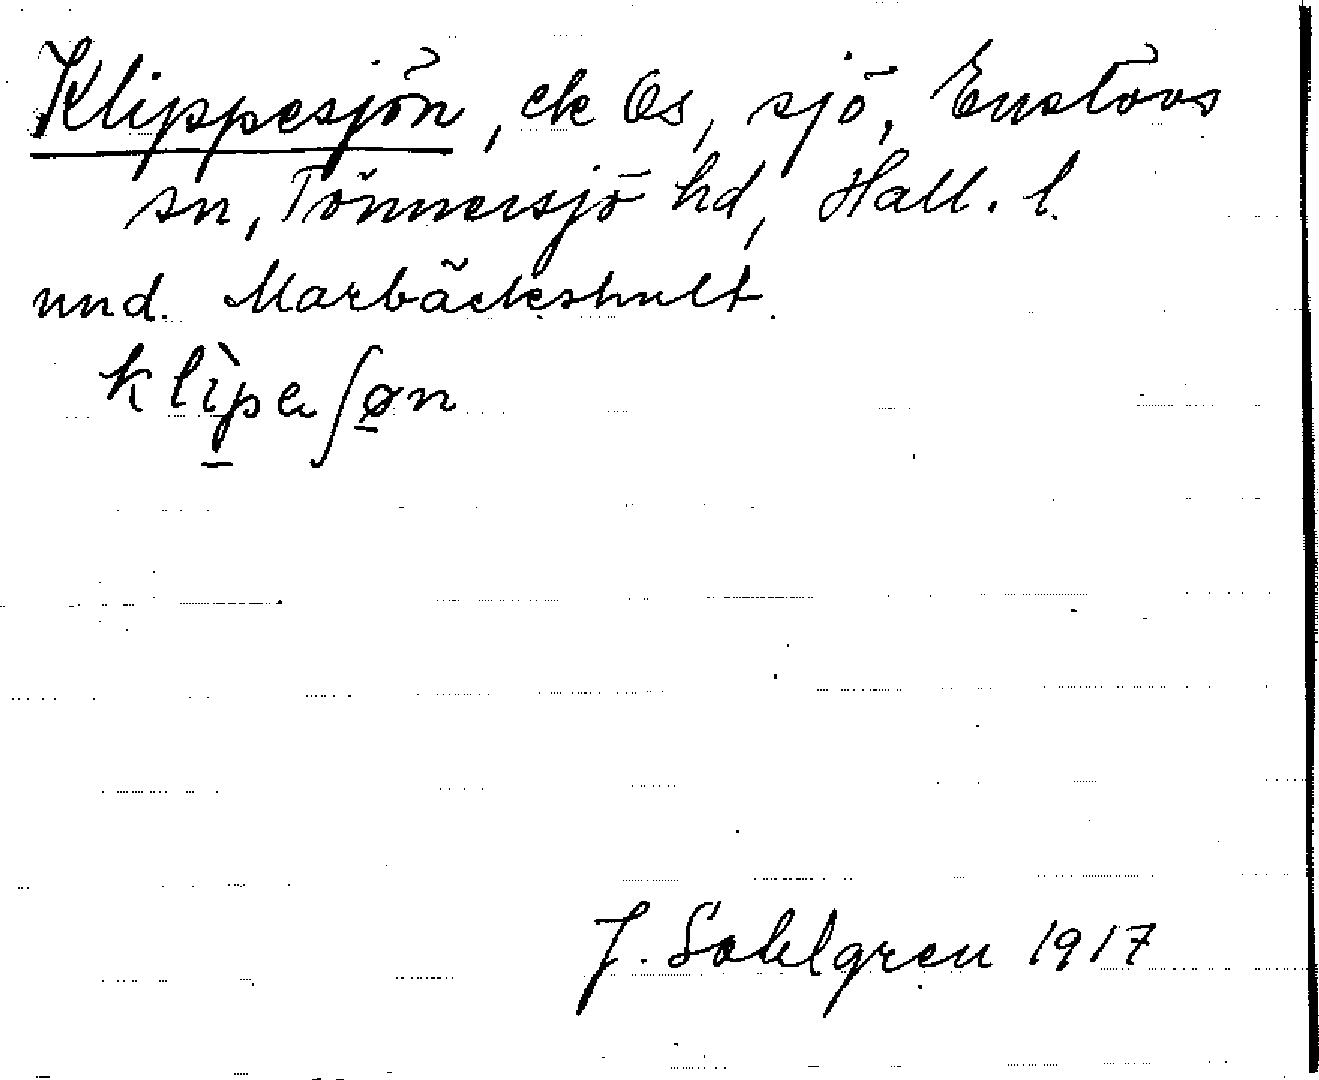 Klippesjön, ek Ös, sjö, Enslövs
sn, Tönnersjö hd, Hall. l.
und. Marbäckshult.
klìpeʃøn
J. Sahlgren 1917